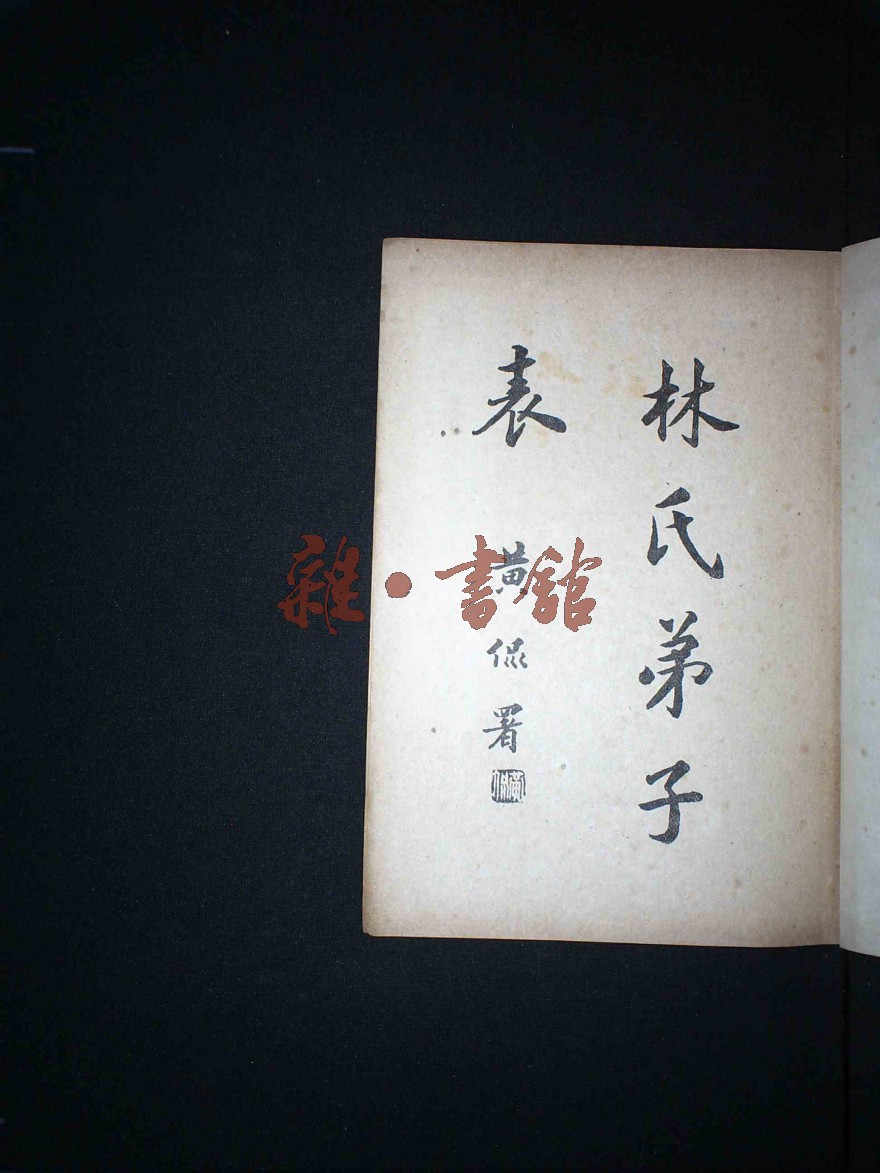 林氏弟子
表
黄侃署
雜·書館